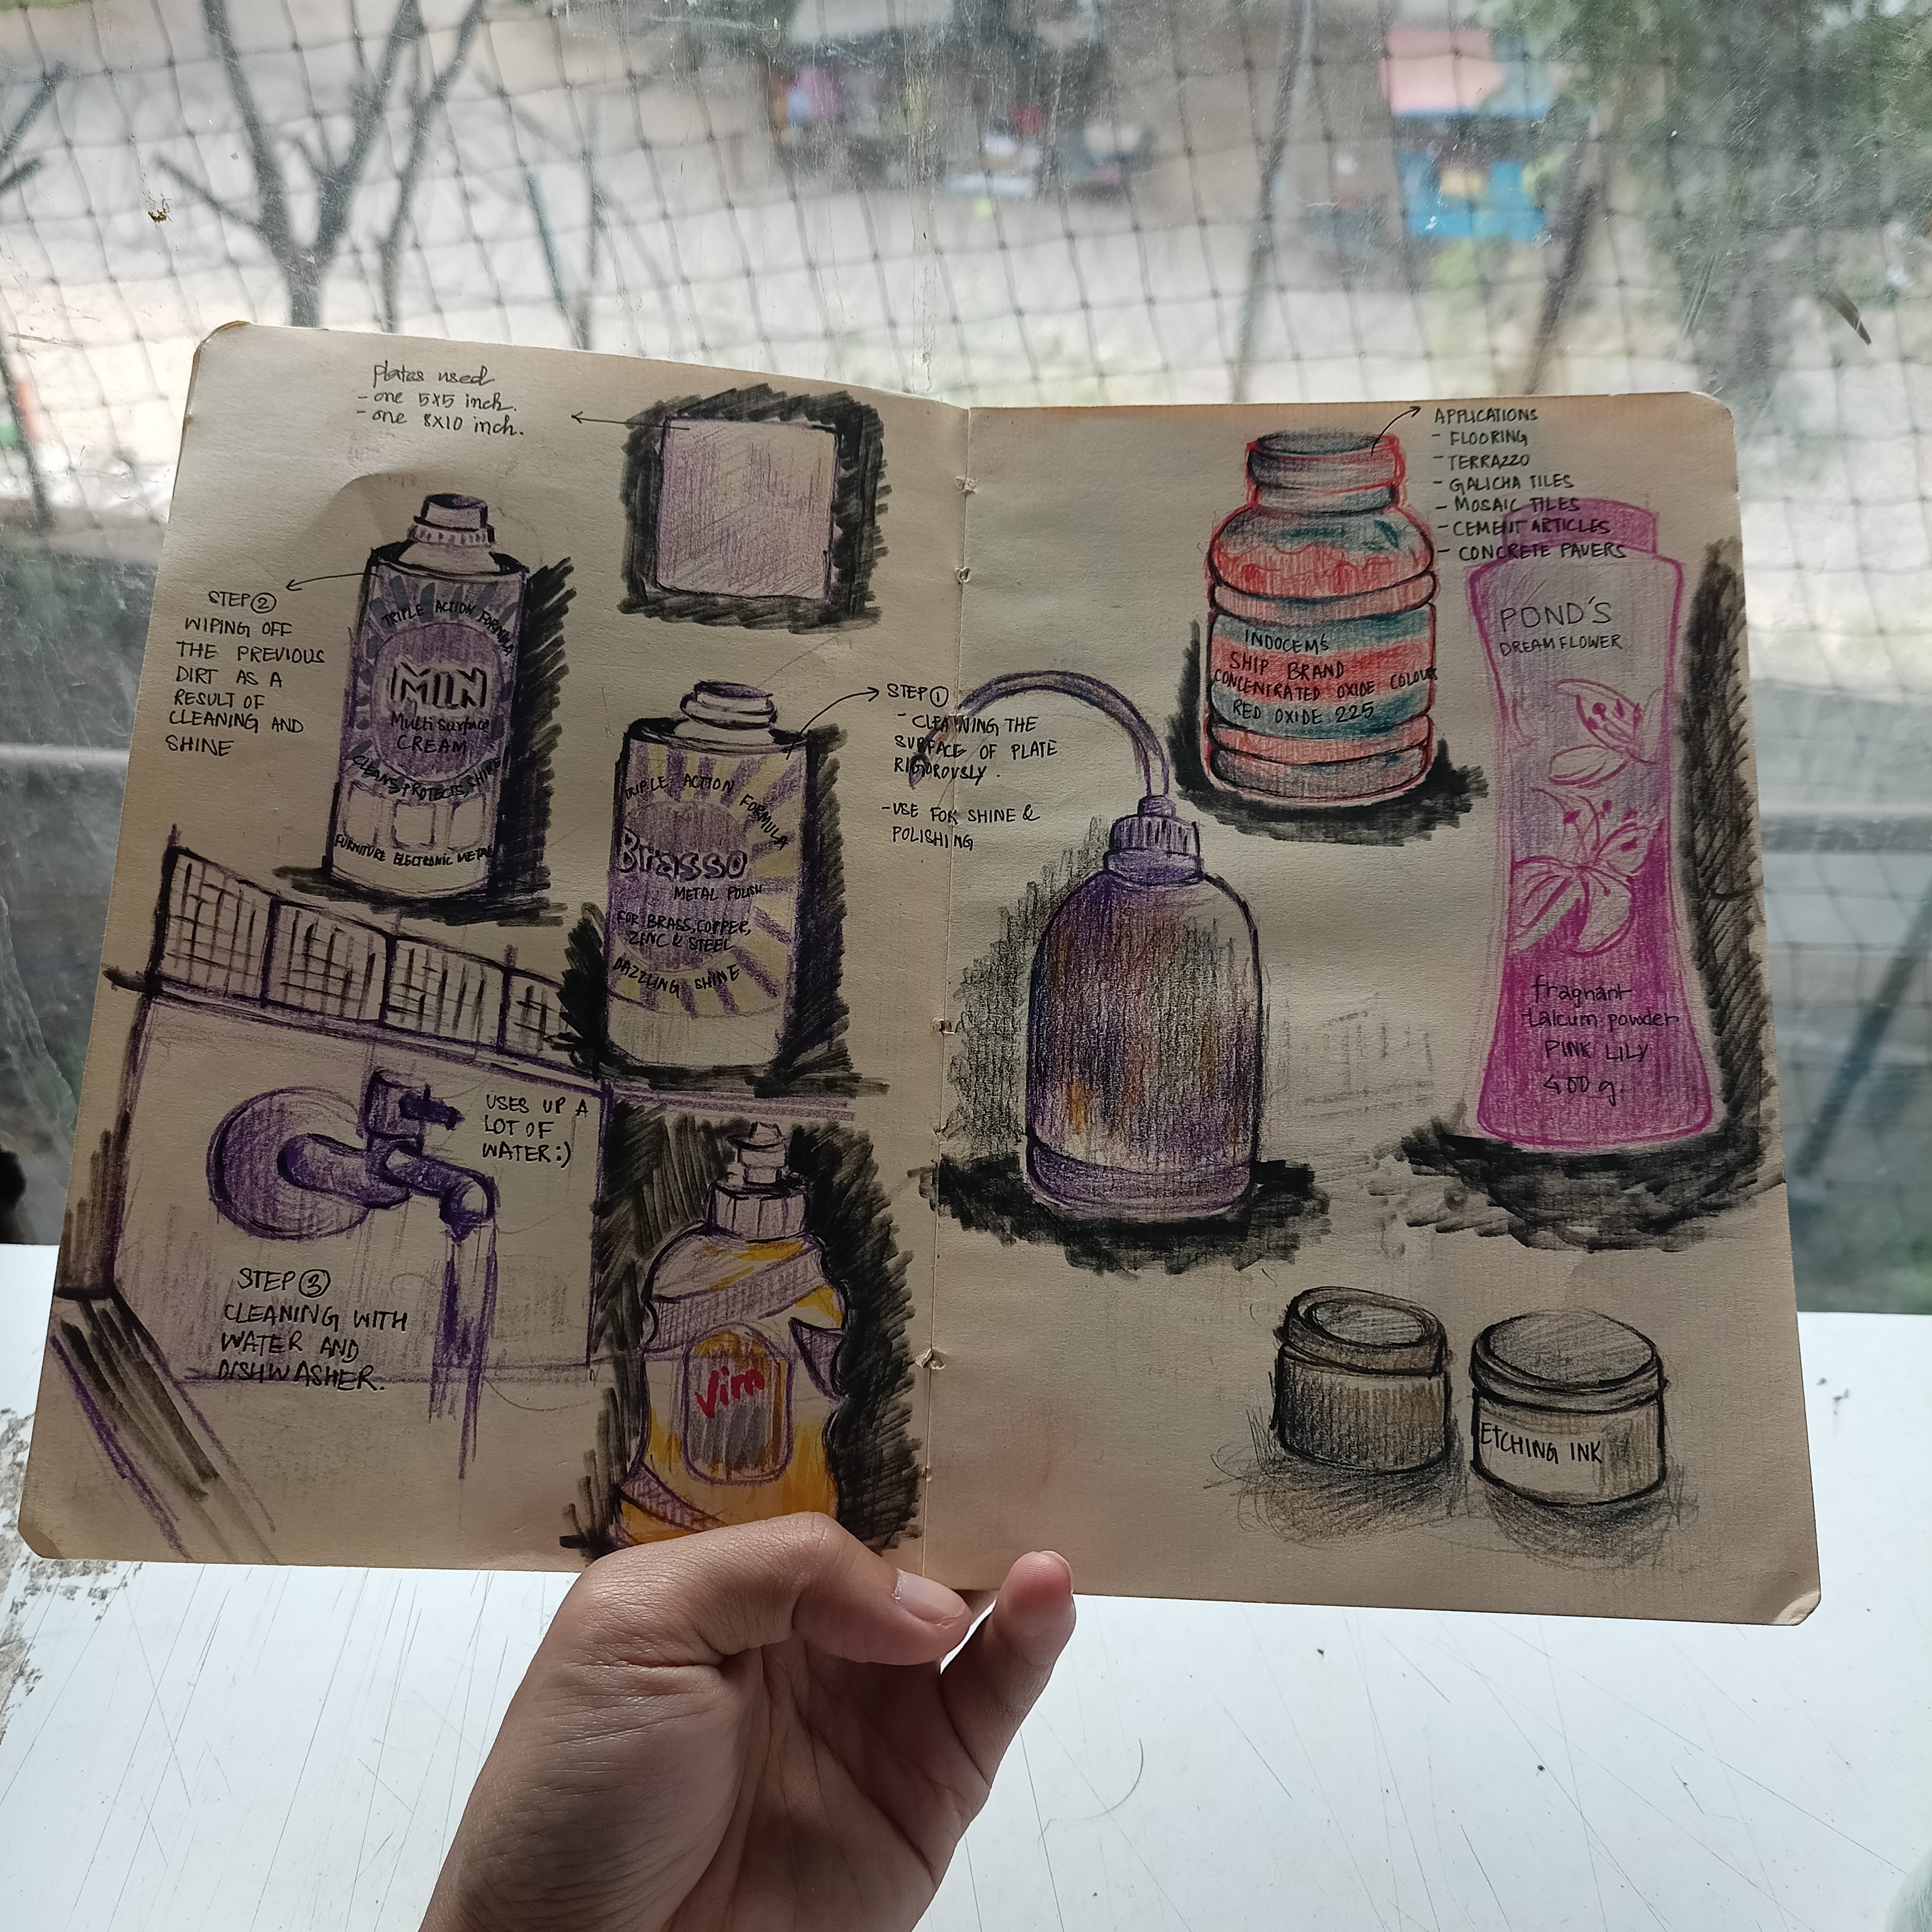 plates used
- one 5x5 inch.
- one 8x10 inch.
STEP ②
WIPING OFF
THE PREVIOUS
DIRT AS A
RESULT OF
CLEANING AND
SHINE
TRIPLE ACTION FORMULA
MIN
Multi surface
CREAM
CLEANS, PROTECTS, SHINE
FURNITURE ELECTRONIC METAL
STEP ①
- CLEANING THE
SURFACE OF PLATE
RIGOROUSLY.
- USE FOR SHINE &
POLISHING
TRIPLE ACTION FORMULA
Brasso
METAL POLISH
FOR BRASS, COPPER,
ZINC & STEEL
DAZZLING SHINE
USES UP A
LOT OF
WATER:)
STEP ③
CLEANING WITH
WATER AND
DISHWASHER.
Vim
APPLICATIONS
- FLOORING
- TERRAZZO
- GALICHA TILES
- MOSAIC TILES
- CEMENT ARTICLES
- CONCRETE PAVERS
INDOCEM'S
SHIP BRAND
CONCENTRATED OXIDE COLOUR
RED OXIDE 225
POND'S
DREAMFLOWER
fragnant
talcum powder
PINK LILY
400 g.
ETCHING INK